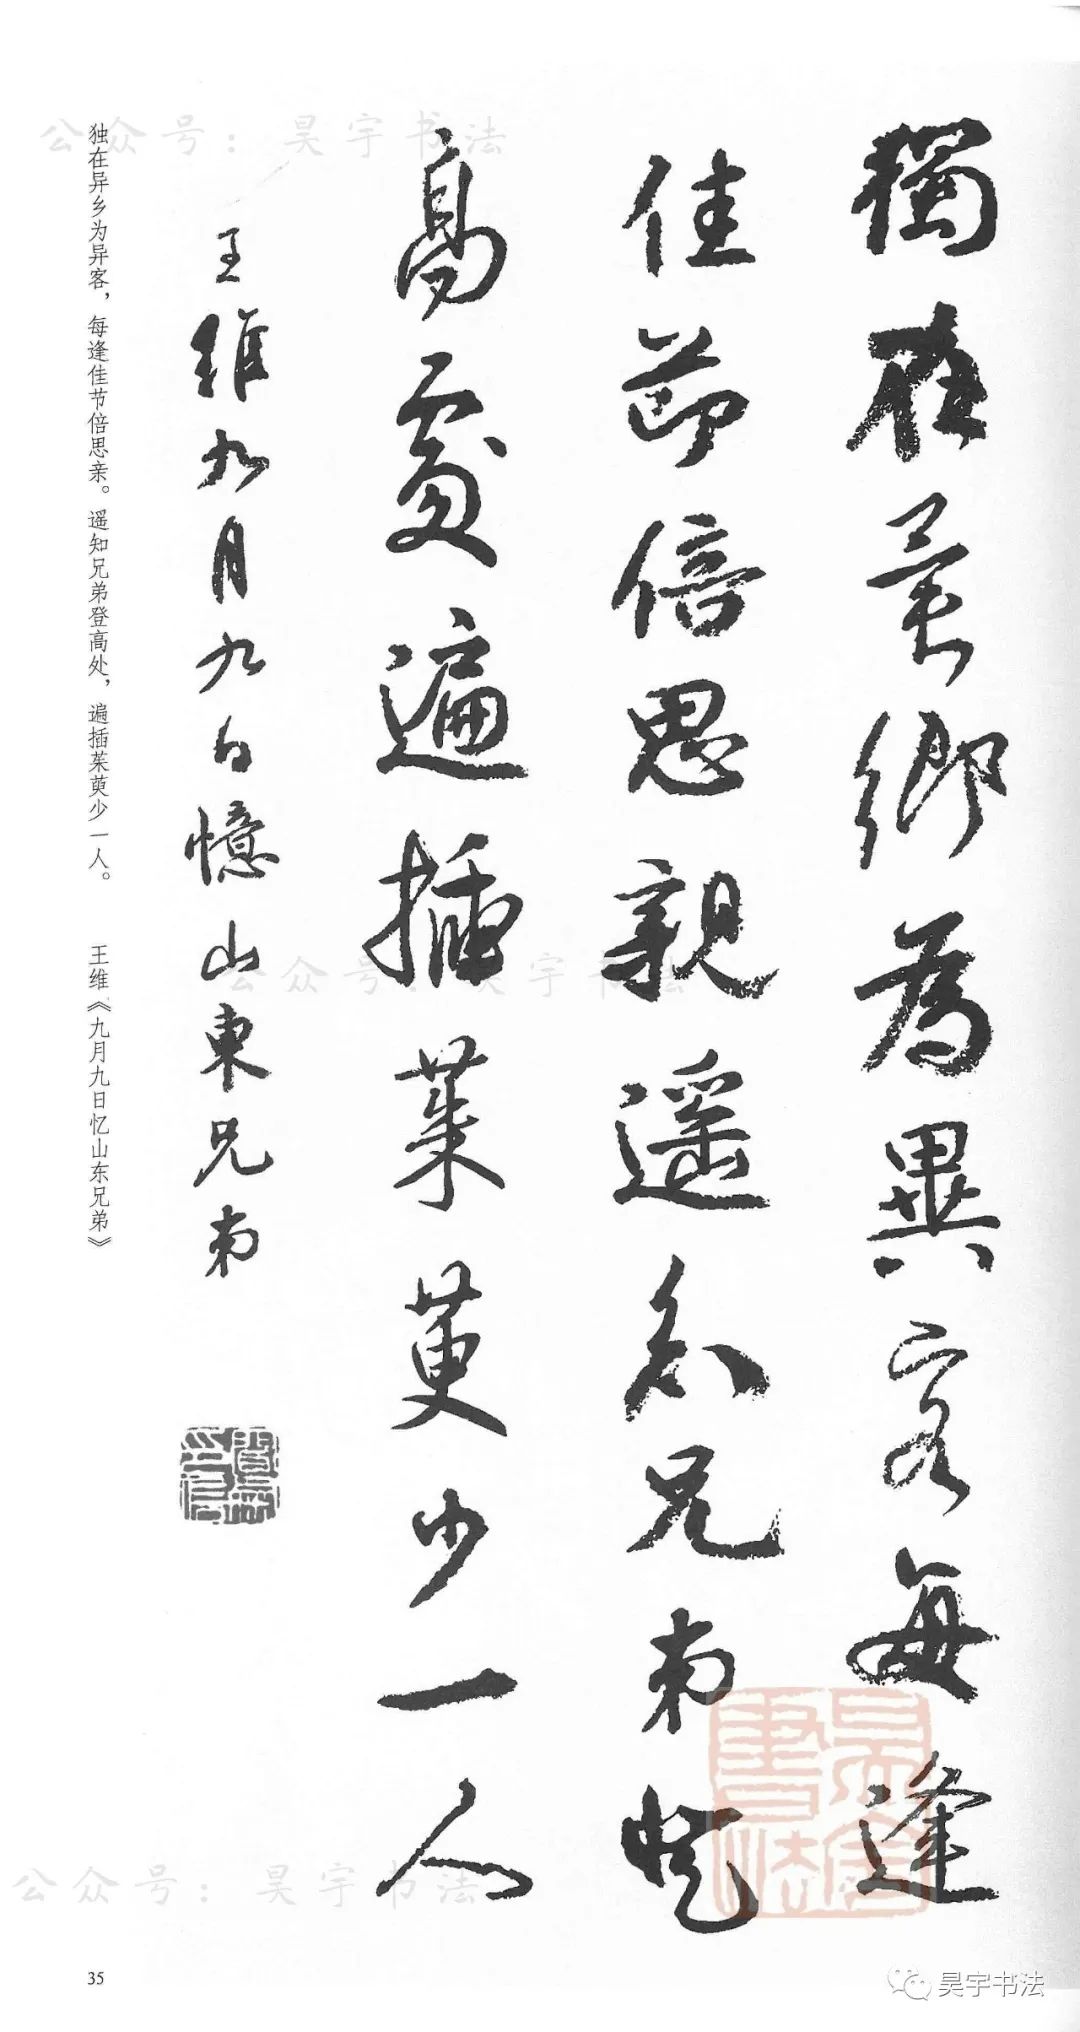 獨在異鄉為異客每逢
佳節倍思親遥知兄弟登
高處遍插茱萸少一人
王維九月九日憶山東兄弟
独在异乡为异客，每逢佳节倍思亲。遥知兄弟登高处，遍插茱萸少一人。 王维《九月九日忆山东兄弟》
公众号：昊宇书法
公众号：昊宇书法
公众号：昊宇书法
昊宇書法
35
昊宇书法